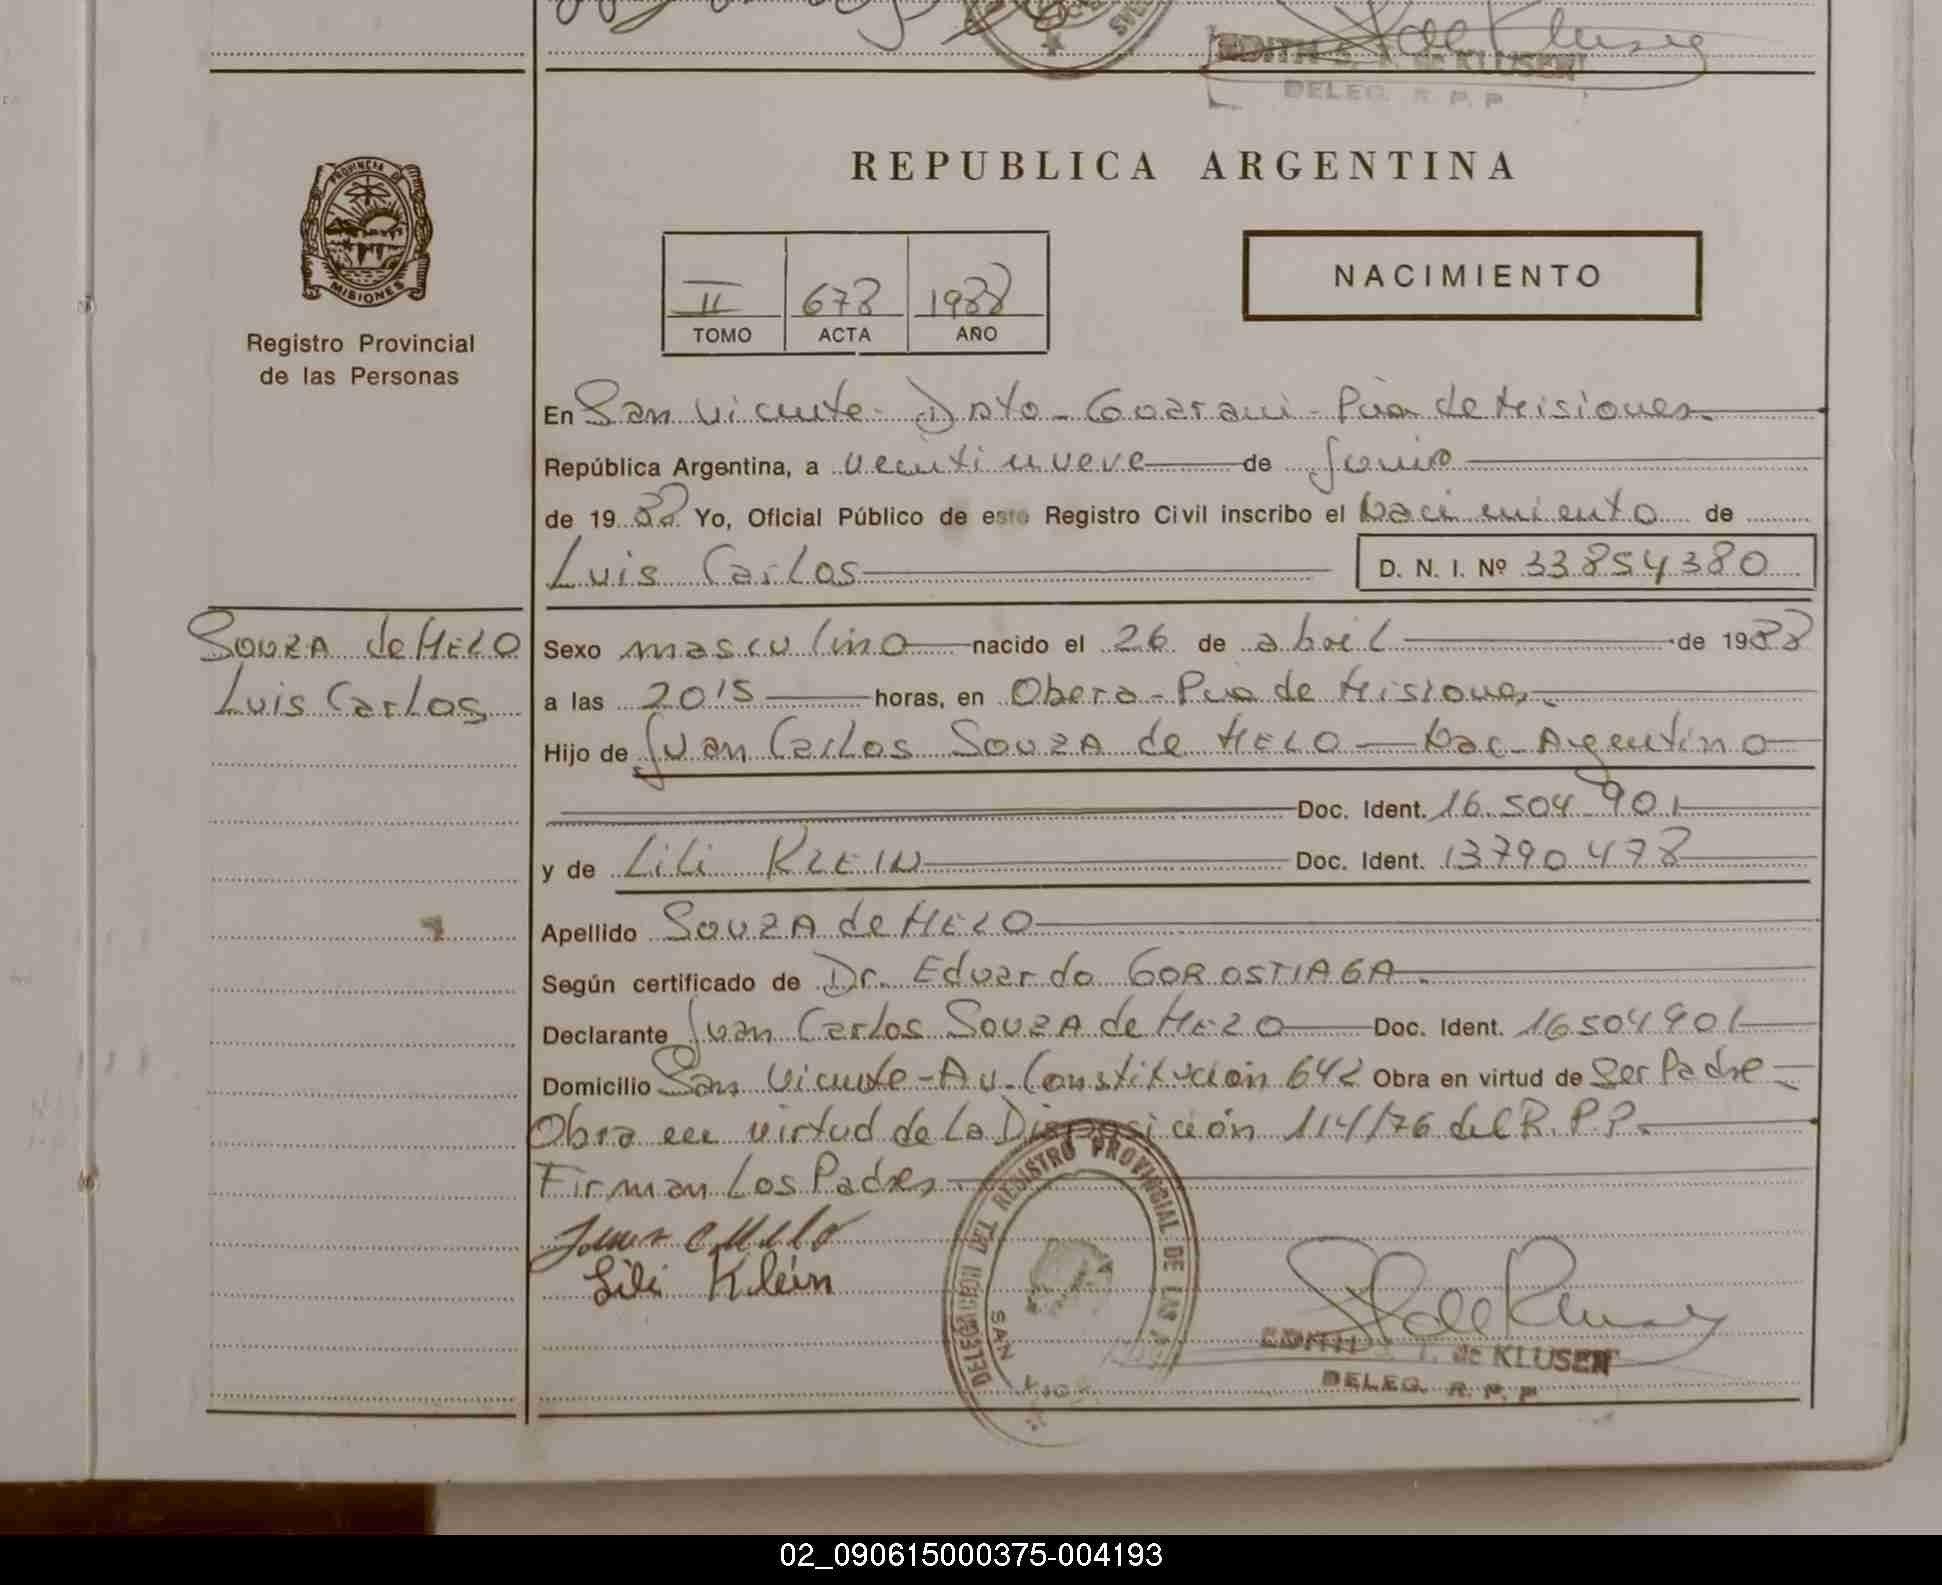 EDITH S. T. de KLUSEN
DELEG. R. P. P
PROVINCIA DE
MISIONES
Registro Provincial
de las Personas
REPUBLICA ARGENTINA
II 678 1988
TOMO ACTA AÑO
NACIMIENTO
En San Vicente - Dpto - Guarani - Pcia de Misiones
República Argentina, a veintinueve de Junio
de 19 88 Yo, Oficial Público de este Registro Civil inscribo el Nacimiento de
Luis Carlos D. N. I. Nº 33854380
SOUZA de MELO
Luis Carlos
Sexo masculino nacido el 26 de abril de 1988
a las 20'15 horas, en Obera - Pcia de Misiones
Hijo de Juan Carlos SOUZA de MELO - Nac - Argentino
Doc. Ident. 16.504.901
y de Lili KLEIN Doc. Ident. 13790478
Apellido SOUZA de MELO
Según certificado de Dr. Eduardo GOROSTIAGA
Declarante Juan Carlos SOUZA de MELO Doc. Ident. 16504901
Domicilio San Vicente - Av. Constitución 642 Obra en virtud de Ser Padre -
Obra en virtud de La Disposición 114/76 del R.P.P.
Firman Los Padres
Lili Klein
DELEGACION DEL REGISTRO PROVINCIAL DE LAS
SAN VIC
de KLUSEN
DELEG. R. P. P
02_090615000375-004193